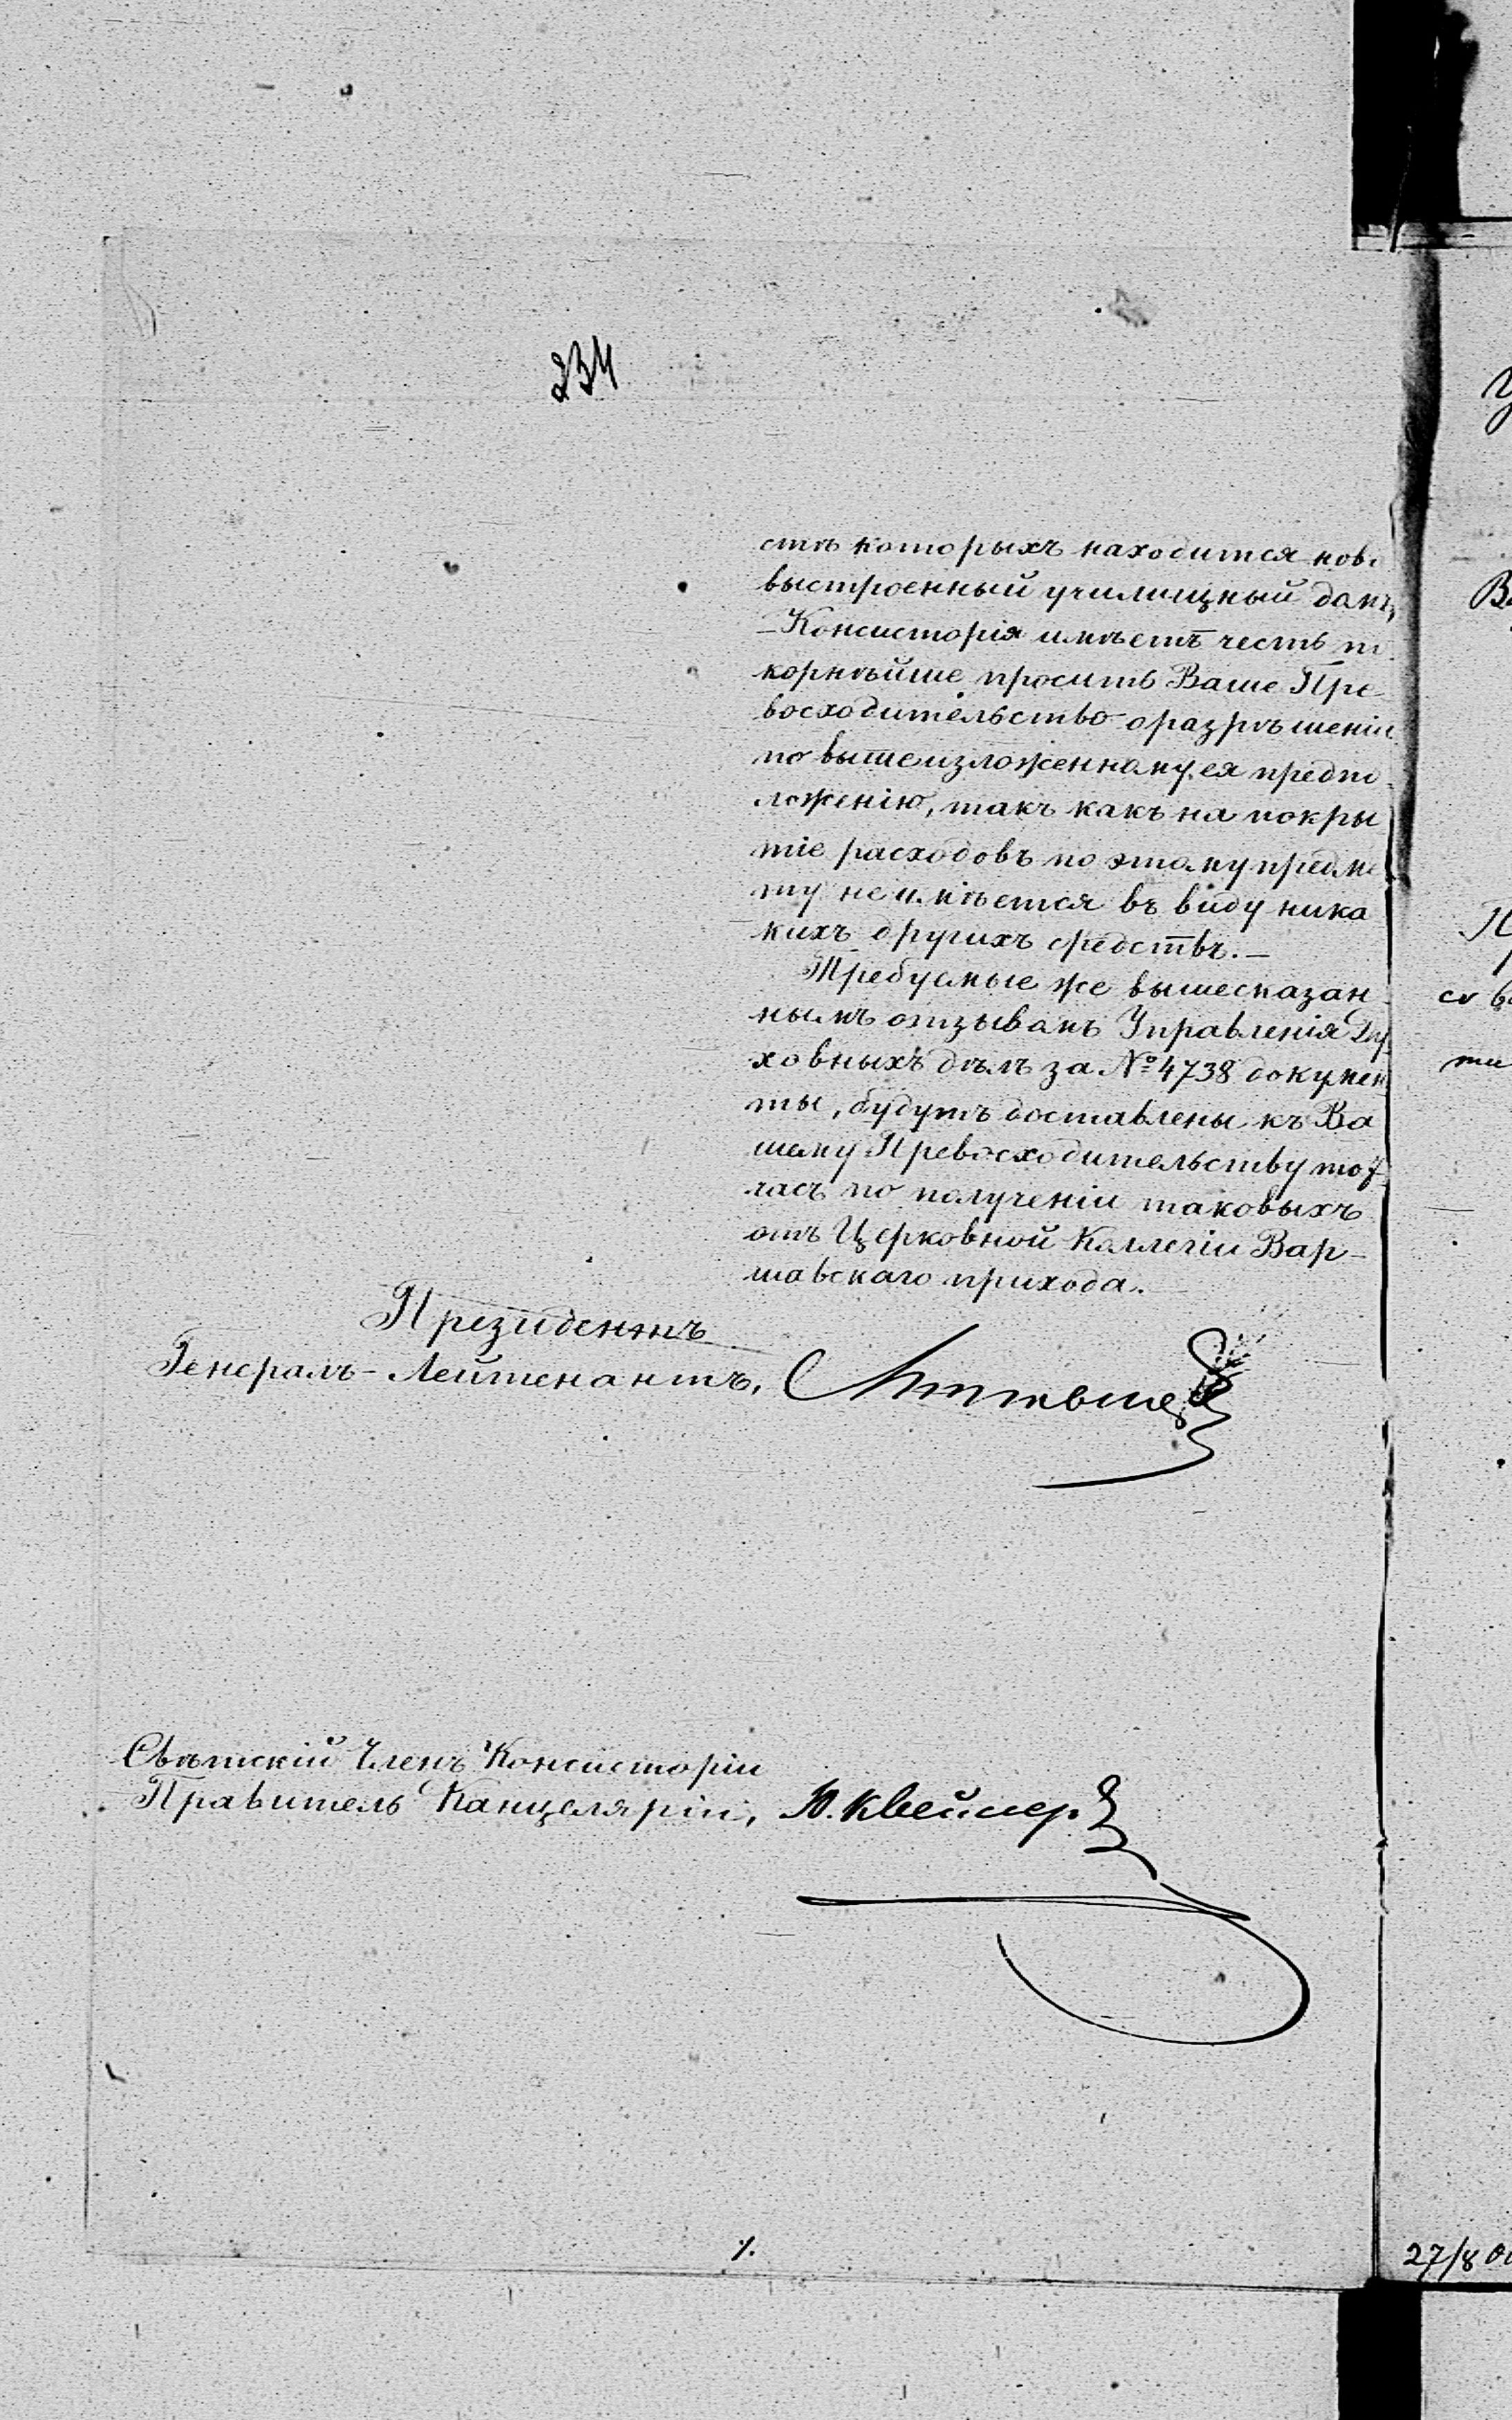 234
стѣ которыхъ находится ново
выстроенный училищный домъ,
–Консисторія имѣетъ честь по
корнѣйше просить Ваше Пре
восходительство о разрѣшеніи
по вышеизложенному ея предпо
ложенію, такъ какъ на покры
тіе расходовъ по этому предме
ту не имѣется въ виду ника
кихъ другихъ средствъ.–
Требуемые же вышесказан
нымъ отзывомъ Управленія Ду
ховныхъ дѣлъ за № 4738 докумен
ты, будутъ доставлены къ Ва
шему Превосходительству тот
часъ по полученіи таковыхъ
отъ Церковной Коллегіи Вар–
шавскаго прихода.
Президентъ
Генералъ-Лейтенантъ,
Свѣтскій Членъ Консисторіи
Правитель Канцеляріи, Ю. Квейссер
%.
27/8